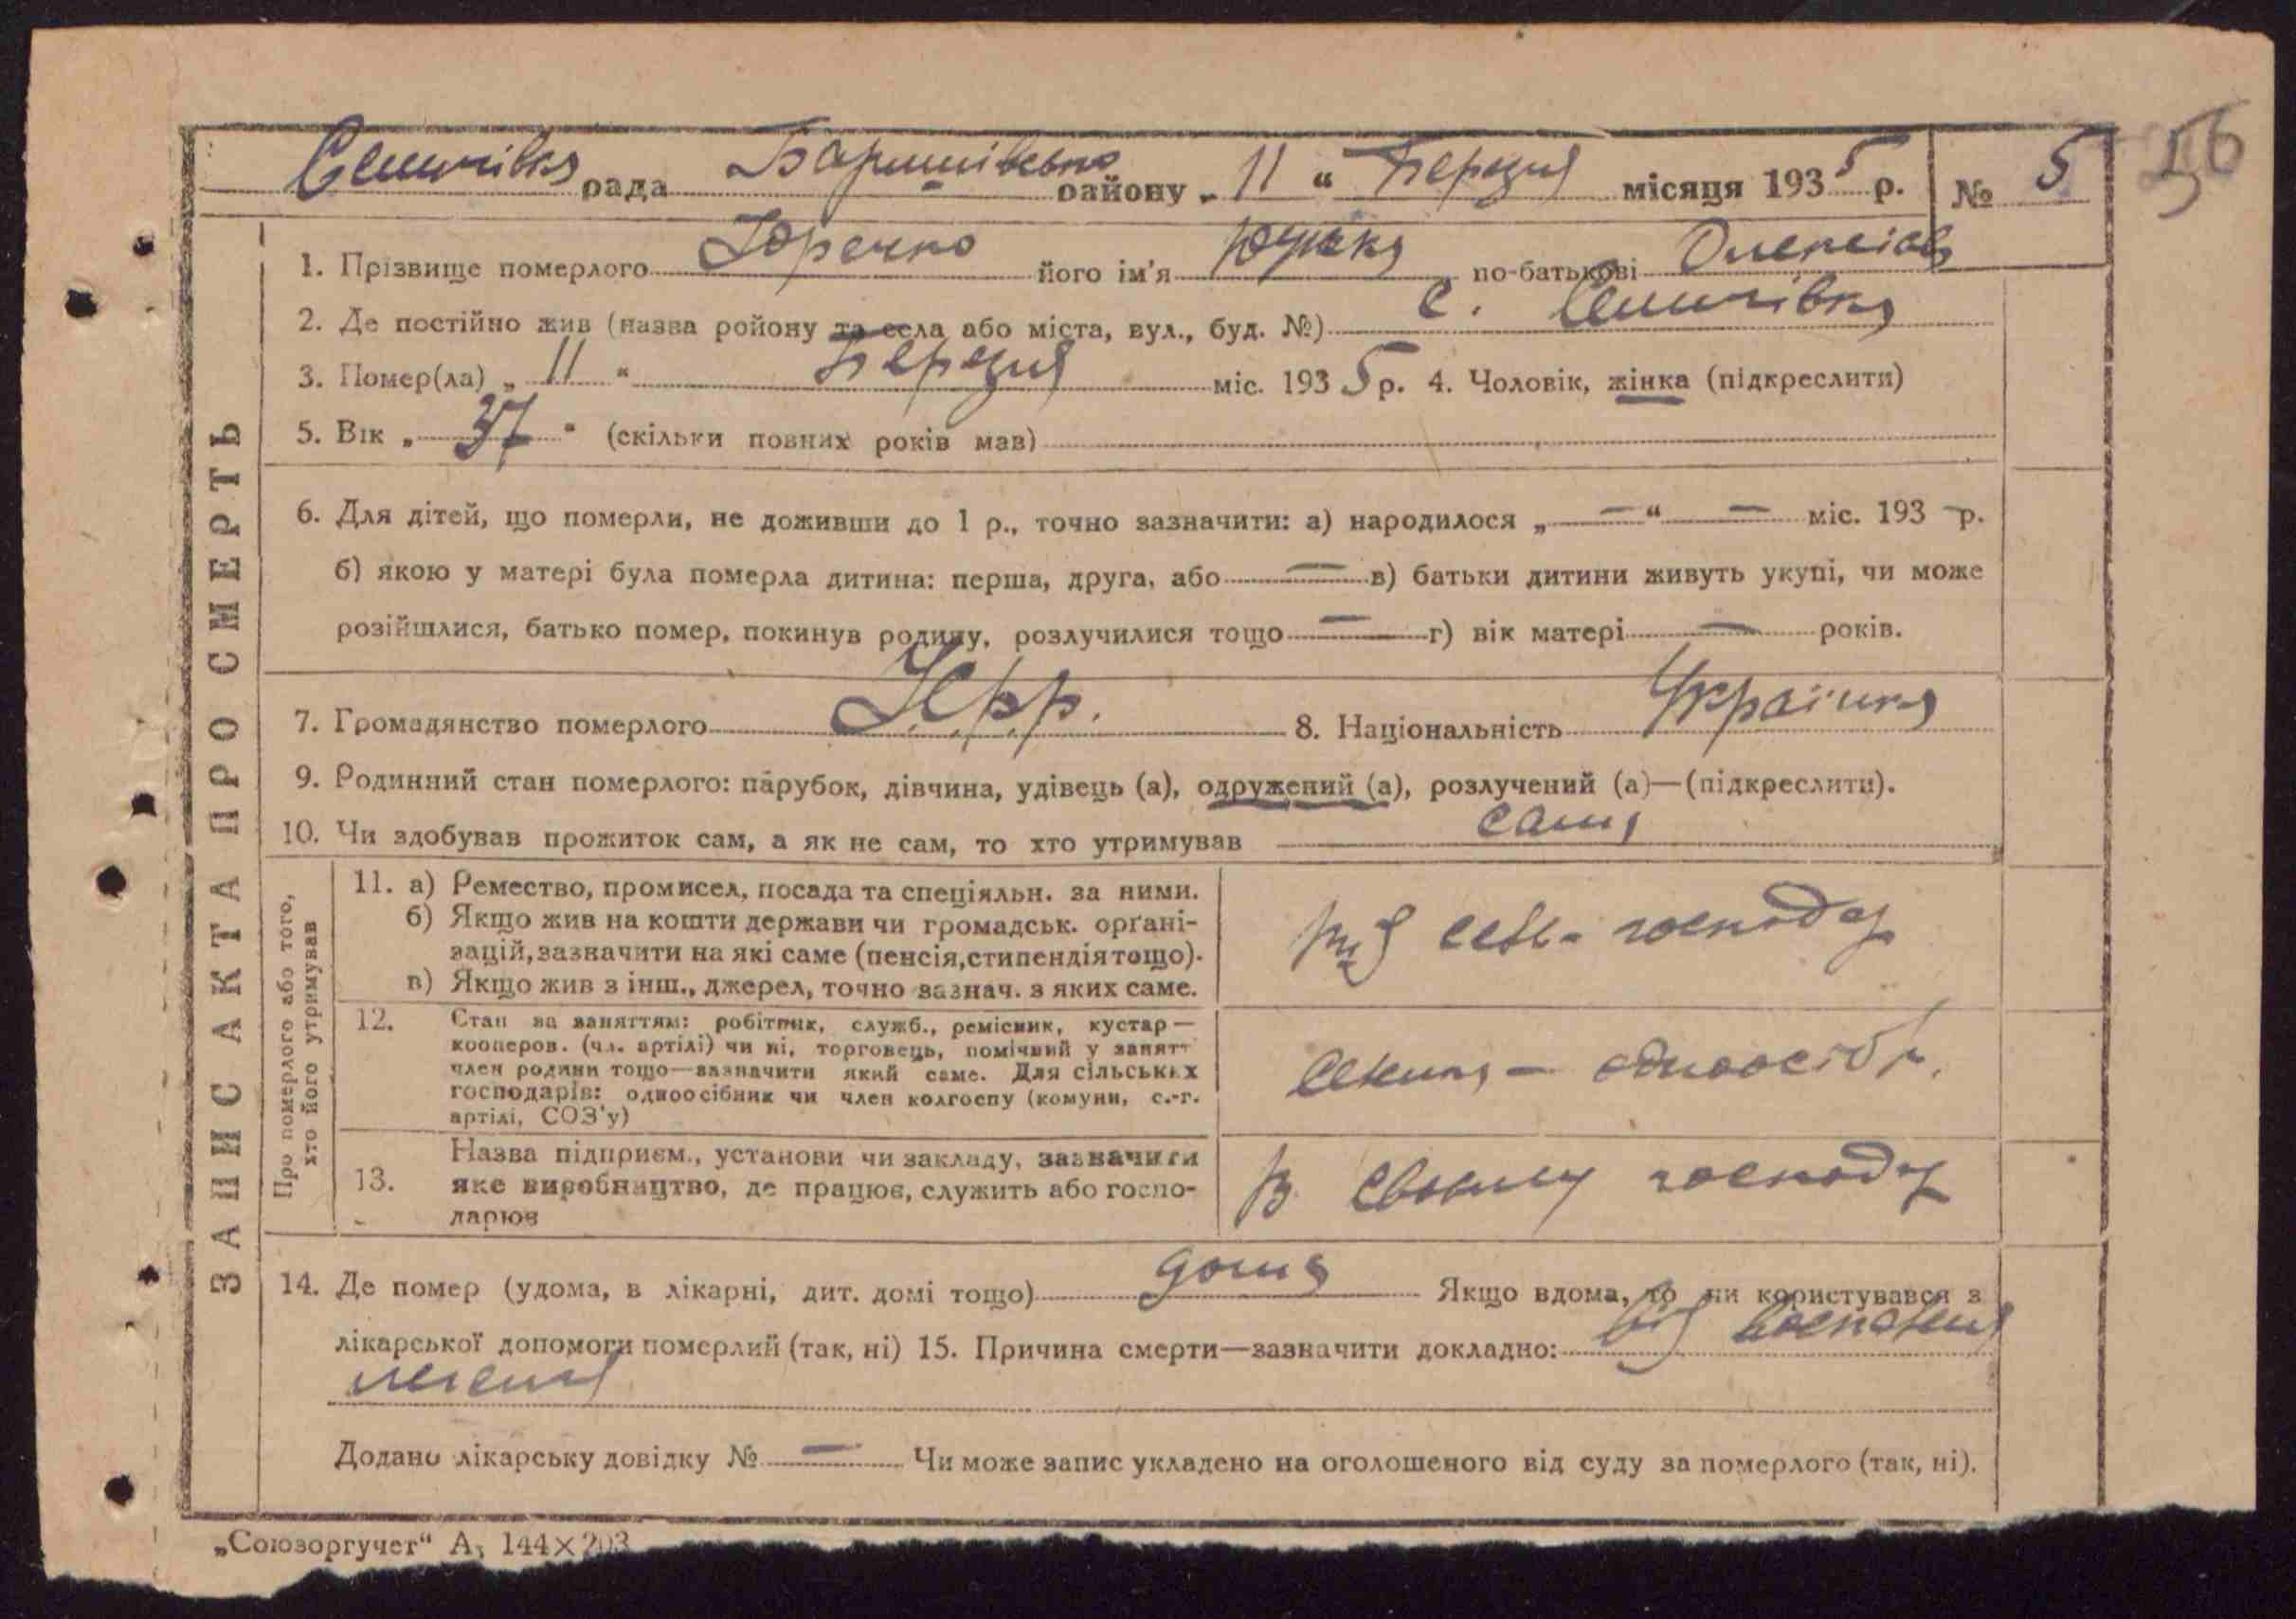 56
Селичівка рада Баришівсько району „ 11 “ Березня місяця 1935 р. № 5
1. Прізвище померлого Юречко його ім'я по-батькові Олексіов
2. Де постійно жив (назва ройону та села або міста, вул., буд. №) с. Селичівка
3. Помер(ла) „ 11 “ Березня міс. 1935 р. 4. Чоловік, жінка (підкреслити)
5. Вік „ 37 “ (скільки повних років мав)
6. Для дітей, що померли, не доживши до 1 р., точно зазначити: а) народилося „ — “ — міс. 193 — р.
б) якою у матері була померла дитина: перша, друга, або — в) батьки дитини живуть укупі, чи може
розійшлися, батько помер, покинув родину, розлучилися тощо — г) вік матері — років.
7. Громадянство померлого 8. Національність Українка
9. Родинний стан померлого: парубок, дівчина, удівець (а), одружений (а), розлучений (а)—(підкреслити).
10. Чи здобував прожиток сам, а як не сам, то хто утримував сама
ЗАПИС АКТА ПРО СМЕРТЬ
Про померлого або того,
хто його утримував
11. а) Ремество, промисел, посада та спеціяльн. за ними.
б) Якщо жив на кошти держави чи громадськ. орґані-
зацій, зазначити на які саме (пенсія, стипендія тощо).
в) Якщо жив з інш., джерел, точно зазнач. з яких саме.
від сель-господар
12. Стан за заняттям: робітник, служб., ремісник, кустар —
кооперов. (чл. артілі) чи ні, торговець, помічний у занятт
член родини тощо—зазначити який саме. Для сільських
господарів: одноосібник чи член колгоспу (комуни, с.-г.
артілі, СОЗ'у)
одноосібн.
13. Назва підприєм., установи чи закладу, зазначити
яке виробництво, де працює, служить або госпо-
дарює
В своєму господар
14. Де помер (удома, в лікарні, дит. домі тощо) дома Якщо вдома, то чи користувався з
лікарської допомоги померлий (так, ні) 15. Причина смерти—зазначити докладно: від воспалєня
легеня
Додано лікарську довідку № — Чи може запис укладено на оголошеного від суду за померлого (так, ні).
„Союзоргучет“ А₅ 144×203